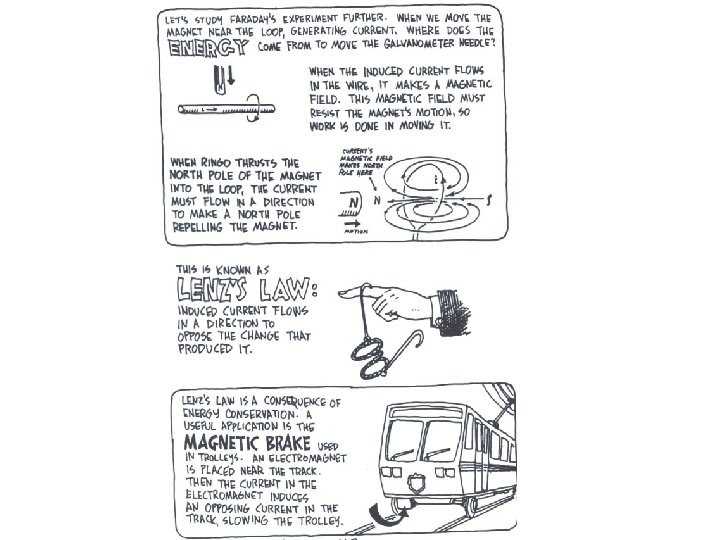 LET'S STUDY FARADAY'S EXPERIMENT FURTHER. WHEN WE MOVE THE
MAGNET NEAR THE LOOP, GENERATING CURRENT, WHERE DOES THE
ENERGY COME FROM TO MOVE THE GALVANOMETER NEEDLE?
WHEN THE INDUCED CURRENT FLOWS
IN THE WIRE, IT MAKES A MAGNETIC
FIELD. THIS MAGNETIC FIELD MUST
RESIST THE MAGNET'S MOTION, SO
WORK IS DONE IN MOVING IT.
WHEN RINGO THRUSTS THE
NORTH POLE OF THE MAGNET
INTO THE LOOP, THE CURRENT
MUST FLOW IN A DIRECTION
TO MAKE A NORTH POLE
REPELLING THE MAGNET.
CURRENT'S
MAGNETIC FIELD
MAKES NORTH
POLE HERE
N
N
i
S
MOTION
THIS IS KNOWN AS
LENZ'S LAW:
INDUCED CURRENT FLOWS
IN A DIRECTION TO
OPPOSE THE CHANGE THAT
PRODUCED IT.
LENZ'S LAW IS A CONSEQUENCE OF
ENERGY CONSERVATION. A
USEFUL APPLICATION IS THE
MAGNETIC BRAKE USED
IN TROLLEYS. AN ELECTROMAGNET
IS PLACED NEAR THE TRACK.
THEN THE CURRENT IN THE
ELECTROMAGNET INDUCES
AN OPPOSING CURRENT IN THE
TRACK, SLOWING THE TROLLEY.